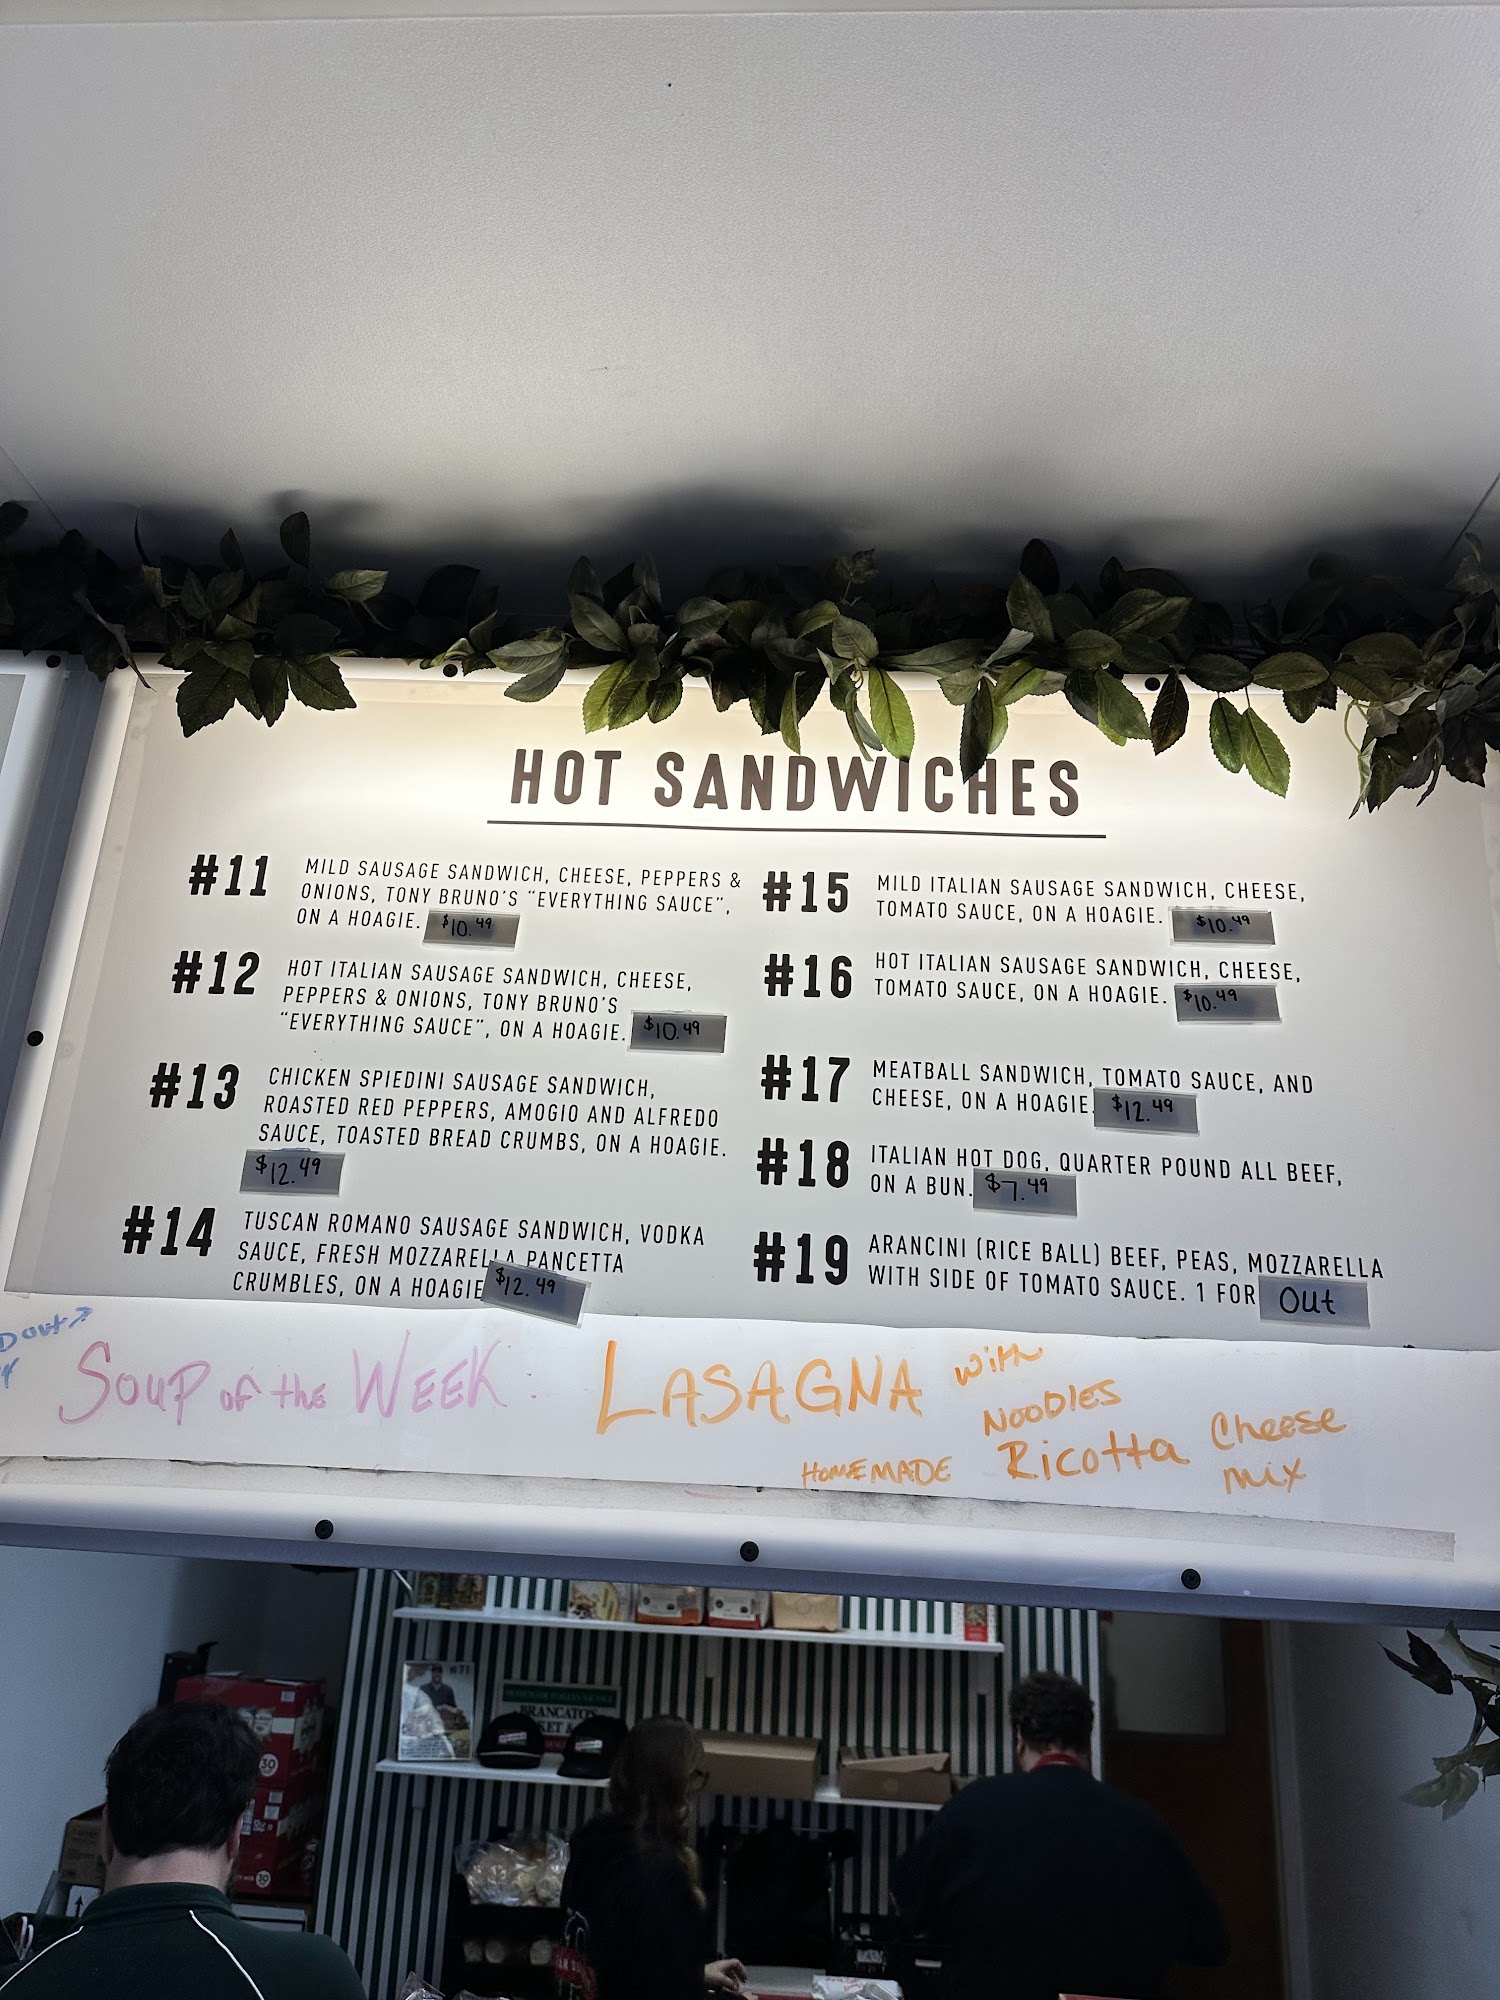 HOT SANDWICHES
#11
MILD SAUSAGE SANDWICH, CHEESE, PEPPERS &
ONIONS, TONY BRUNO'S "EVERYTHING SAUCE",
ON A HOAGIE. $10.49
#12
HOT ITALIAN SAUSAGE SANDWICH, CHEESE,
PEPPERS & ONIONS, TONY BRUNO'S
"EVERYTHING SAUCE", ON A HOAGIE. $10.49
#13
CHICKEN SPIEDINI SAUSAGE SANDWICH,
ROASTED RED PEPPERS, AMOGIO AND ALFREDO
SAUCE, TOASTED BREAD CRUMBS, ON A HOAGIE.
$12.49
#14
TUSCAN ROMANO SAUSAGE SANDWICH, VODKA
SAUCE, FRESH MOZZARELLA PANCETTA
CRUMBLES, ON A HOAGIE $12.49
#15
MILD ITALIAN SAUSAGE SANDWICH, CHEESE,
TOMATO SAUCE, ON A HOAGIE. $10.49
#16
HOT ITALIAN SAUSAGE SANDWICH, CHEESE,
TOMATO SAUCE, ON A HOAGIE. $10.49
#17
MEATBALL SANDWICH, TOMATO SAUCE, AND
CHEESE, ON A HOAGIE. $12.49
#18
ITALIAN HOT DOG, QUARTER POUND ALL BEEF,
ON A BUN. $7.49
#19
ARANCINI (RICE BALL) BEEF, PEAS, MOZZARELLA
WITH SIDE OF TOMATO SAUCE. 1 FOR Out
out →
Soup of the Week
LASAGNA with
NOODLES
HOMEMADE Ricotta Cheese
mix
BRANCATO'S
30
30